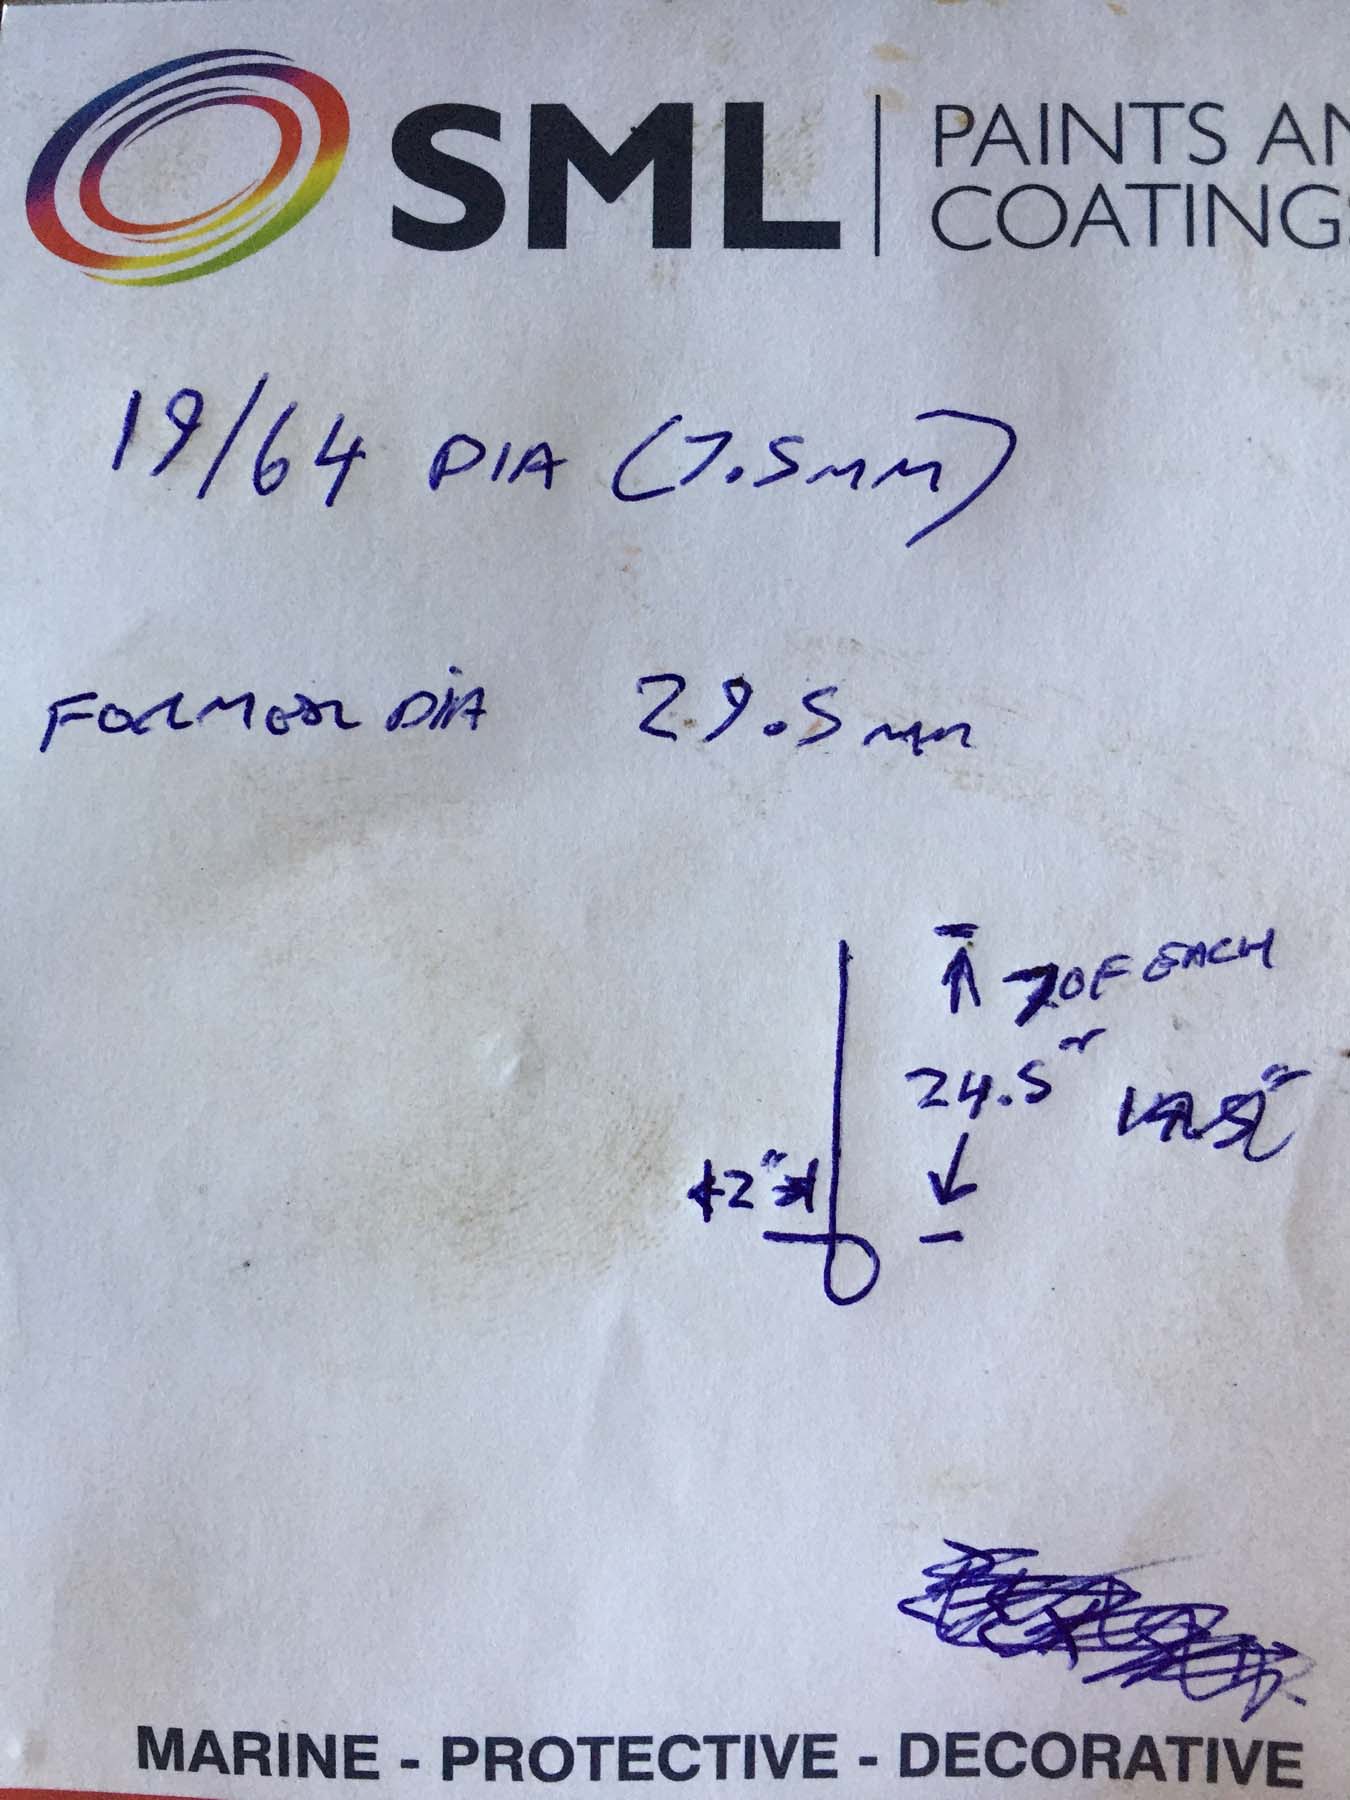 SML
PAINTS AN
COATINGS
19/64 DIA (7.5MM)
FORMER DIA 29.5mm
OF EACH
24.5"
2"
MARINE - PROTECTIVE - DECORATIVE